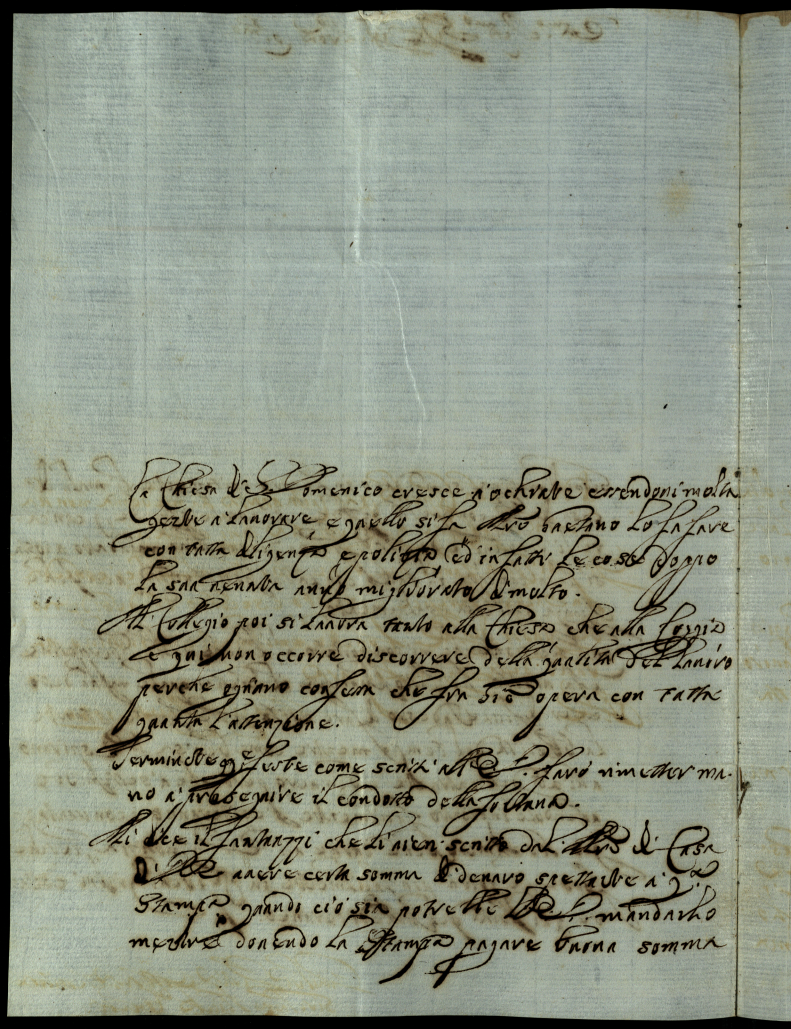 La Chiesa di S. Domenico cresce a ochiate essendoui molta
gente a lauorare e quello si fa Mro Gaetano lo fa fare
con tutta diligenza e polizia ed in fatti le cose doppo
la sua uenuta anno migliorato di molto.
Al Collegio poi si lauora tanto alla Chiesa che alla Loggia
e qui non occorre discorrere della qualità del lauoro
perche ogniuno confessa che fra Gio opera con tutta
quanta l'attenzione.
Terminate feste come scrissi all P. farò rimetter ma-
no a proseguire il condotto della fontana.
Mi dice il che li uien scritto dal di Casa
di auere certa somma di denaro spettante a
Stampa quando ciò sia potrebbe P. mandarlo
mentre douendo la Stampa pagare buona somma